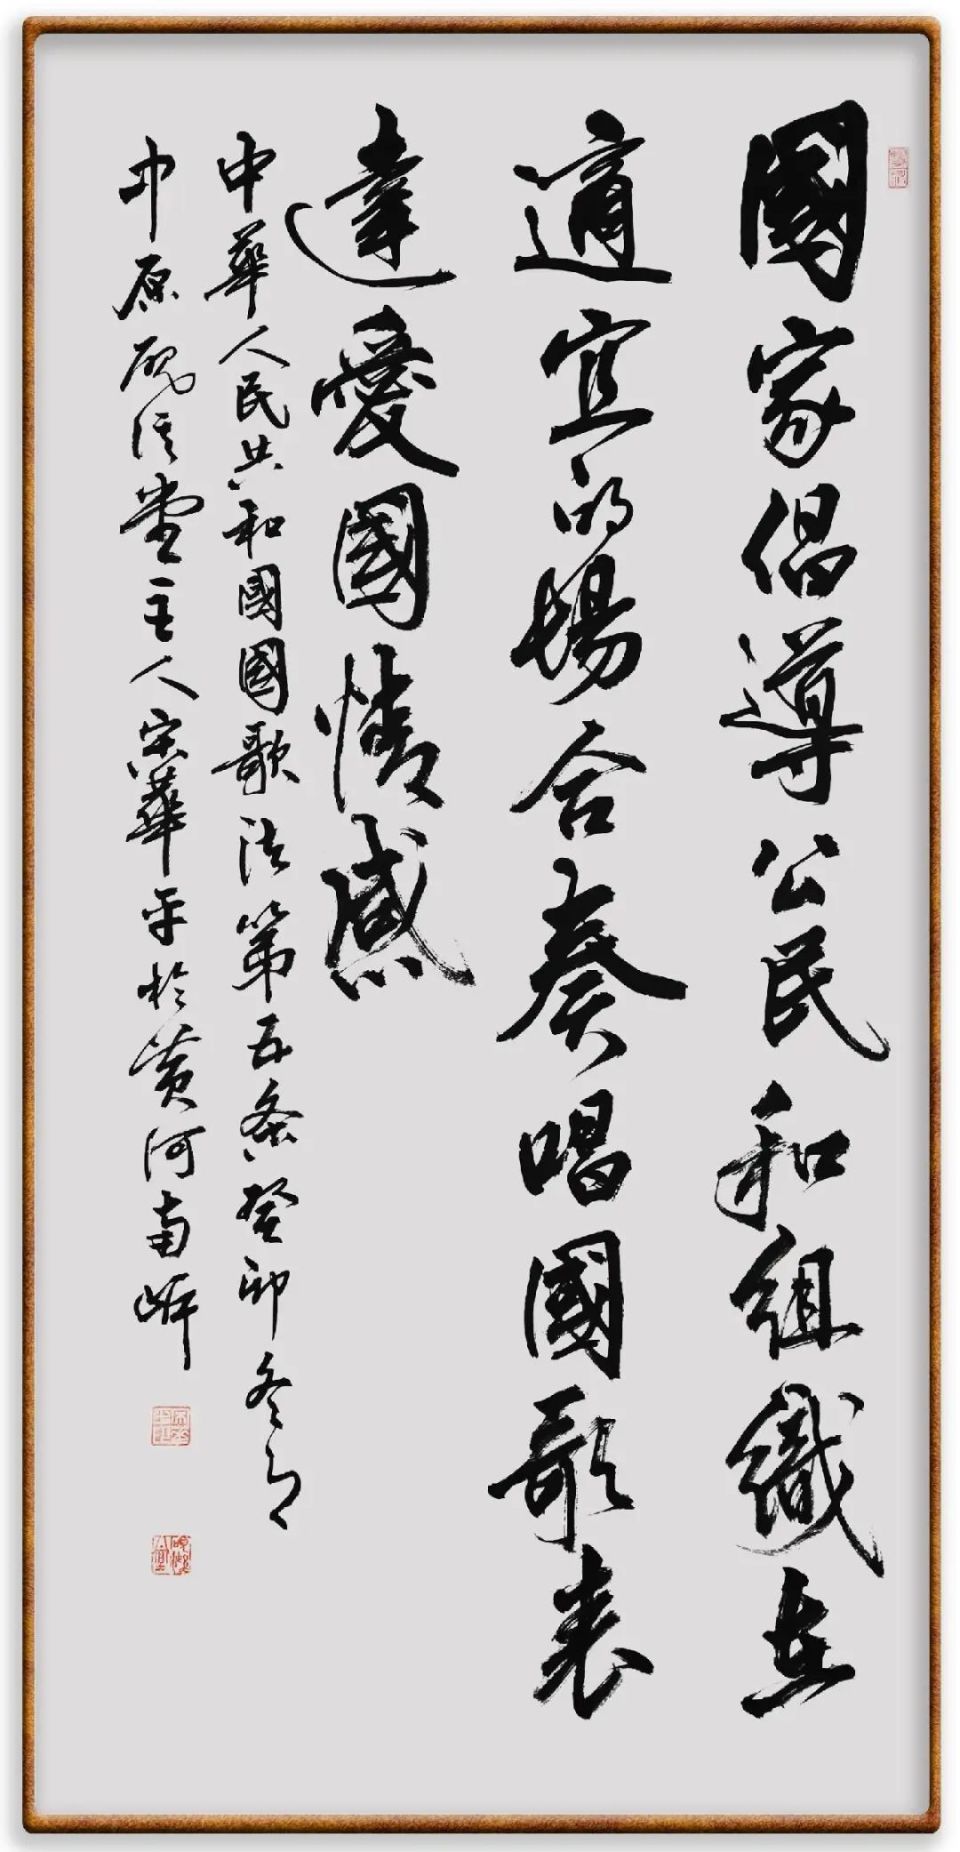 國家倡導公民和組織在
適宜的場合奏唱國歌表
達愛國情感
中華人民共和國國歌法第五条癸卯冬
中原硯堂主人宋華平於黃河南岸